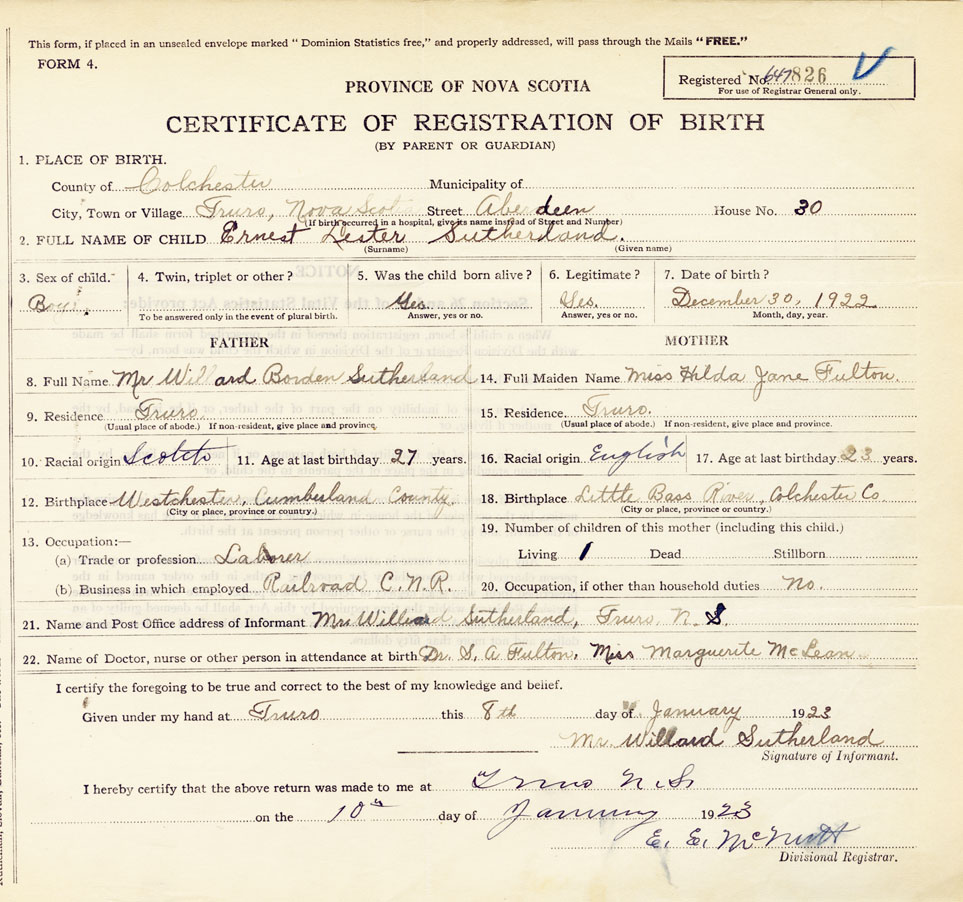 This form, if placed in an unsealed envelope marked "Dominion Statistics free," and properly addressed, will pass through the Mails "FREE."
FORM 4.
Registered No. 826
For use of Registrar General only.
PROVINCE OF NOVA SCOTIA
CERTIFICATE OF REGISTRATION OF BIRTH
(BY PARENT OR GUARDIAN)
1. PLACE OF BIRTH.
County of Colchester Municipality of
City, Town or Village Truro, Nova Scotia Street Aberdeen House No. 30
(If birth occurred in a hospital, give its name instead of Street and Number)
2. FULL NAME OF CHILD Ernest Lester Sutherland.
(Surname) (Given name)
3. Sex of child. 4. Twin, triplet or other? 5. Was the child born alive? 6. Legitimate? 7. Date of birth?
Boy. Yes Yes. December 30, 1922
To be answered only in the event of plural birth. Answer, yes or no. Answer, yes or no. Month, day, year.
FATHER MOTHER
8. Full Name Mr Willard Borden Sutherland 14. Full Maiden Name Miss Hilda Jane Fulton.
9. Residence Truro 15. Residence. Truro.
(Usual place of abode.) If non-resident, give place and province. (Usual place of abode.) If non-resident, give place and province.
10. Racial origin Scotch 11. Age at last birthday 27 years. 16. Racial origin English 17. Age at last birthday 23 years.
12. Birthplace Westchester, Cumberland County. 18. Birthplace Little Bass River, Colchester Co.
(City or place, province or country.) (City or place, province or country.)
13. Occupation:— 19. Number of children of this mother (including this child.)
(a) Trade or profession Laborer Living 1 Dead Stillborn
(b) Business in which employed Railroad C.N.R. 20. Occupation, if other than household duties No.
21. Name and Post Office address of Informant Mr Willard Sutherland, Truro, N.S.
22. Name of Doctor, nurse or other person in attendance at birth Dr. S. A Fulton, Miss Marguerite McLean
I certify the foregoing to be true and correct to the best of my knowledge and belief.
Given under my hand at Truro this 8th day of January 1923
Mr. Willard Sutherland
Signature of Informant.
I hereby certify that the above return was made to me at Truro N.S.
on the 10th day of January 1923
E. E. McNutt
Divisional Registrar.